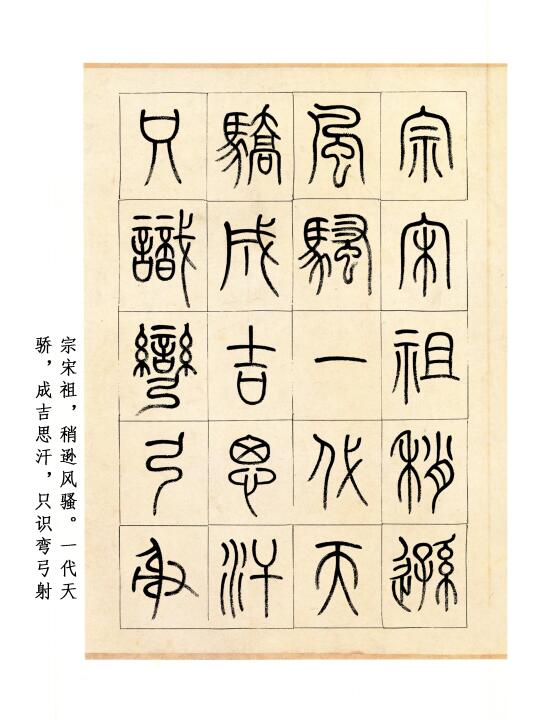 宗宋祖稍遜
風騷一代天
驕成吉思汗
只識彎弓射
宗宋祖，稍逊风骚。一代天
骄，成吉思汗，只识弯弓射